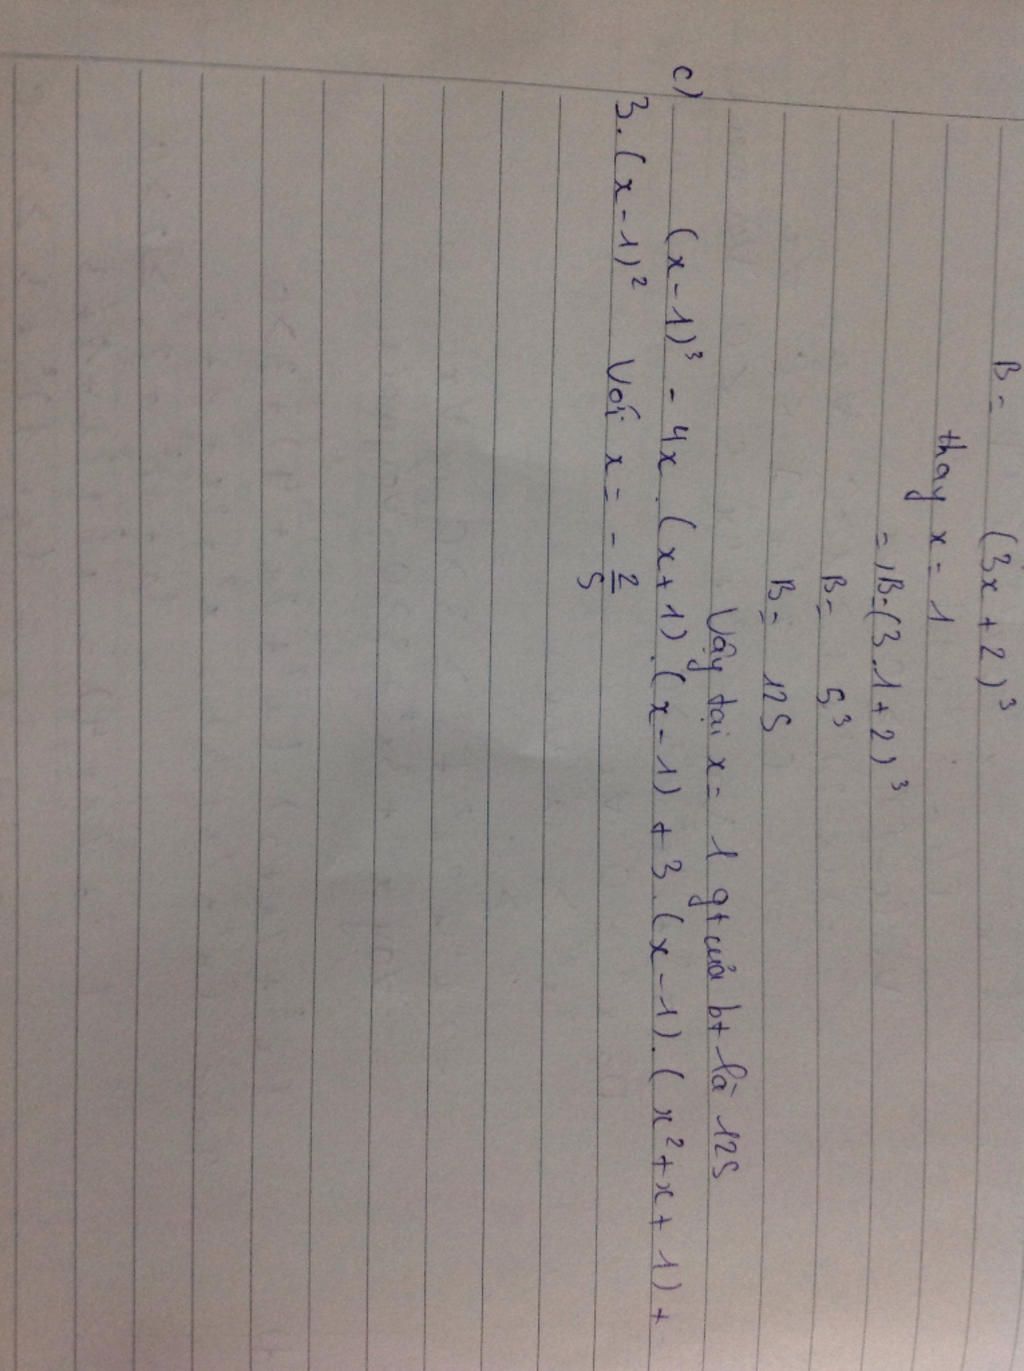 B = (3x + 2)³
thay x = 1
=) B = (3.1 + 2)³
B = 5³
B = 125
Vậy tại x = 1 gt của bt là 125
c) (x - 1)³ - 4x.(x + 1).(x - 1) + 3.(x - 1).(x² + x + 1) +
3.(x - 1)² Với x = - 2/5